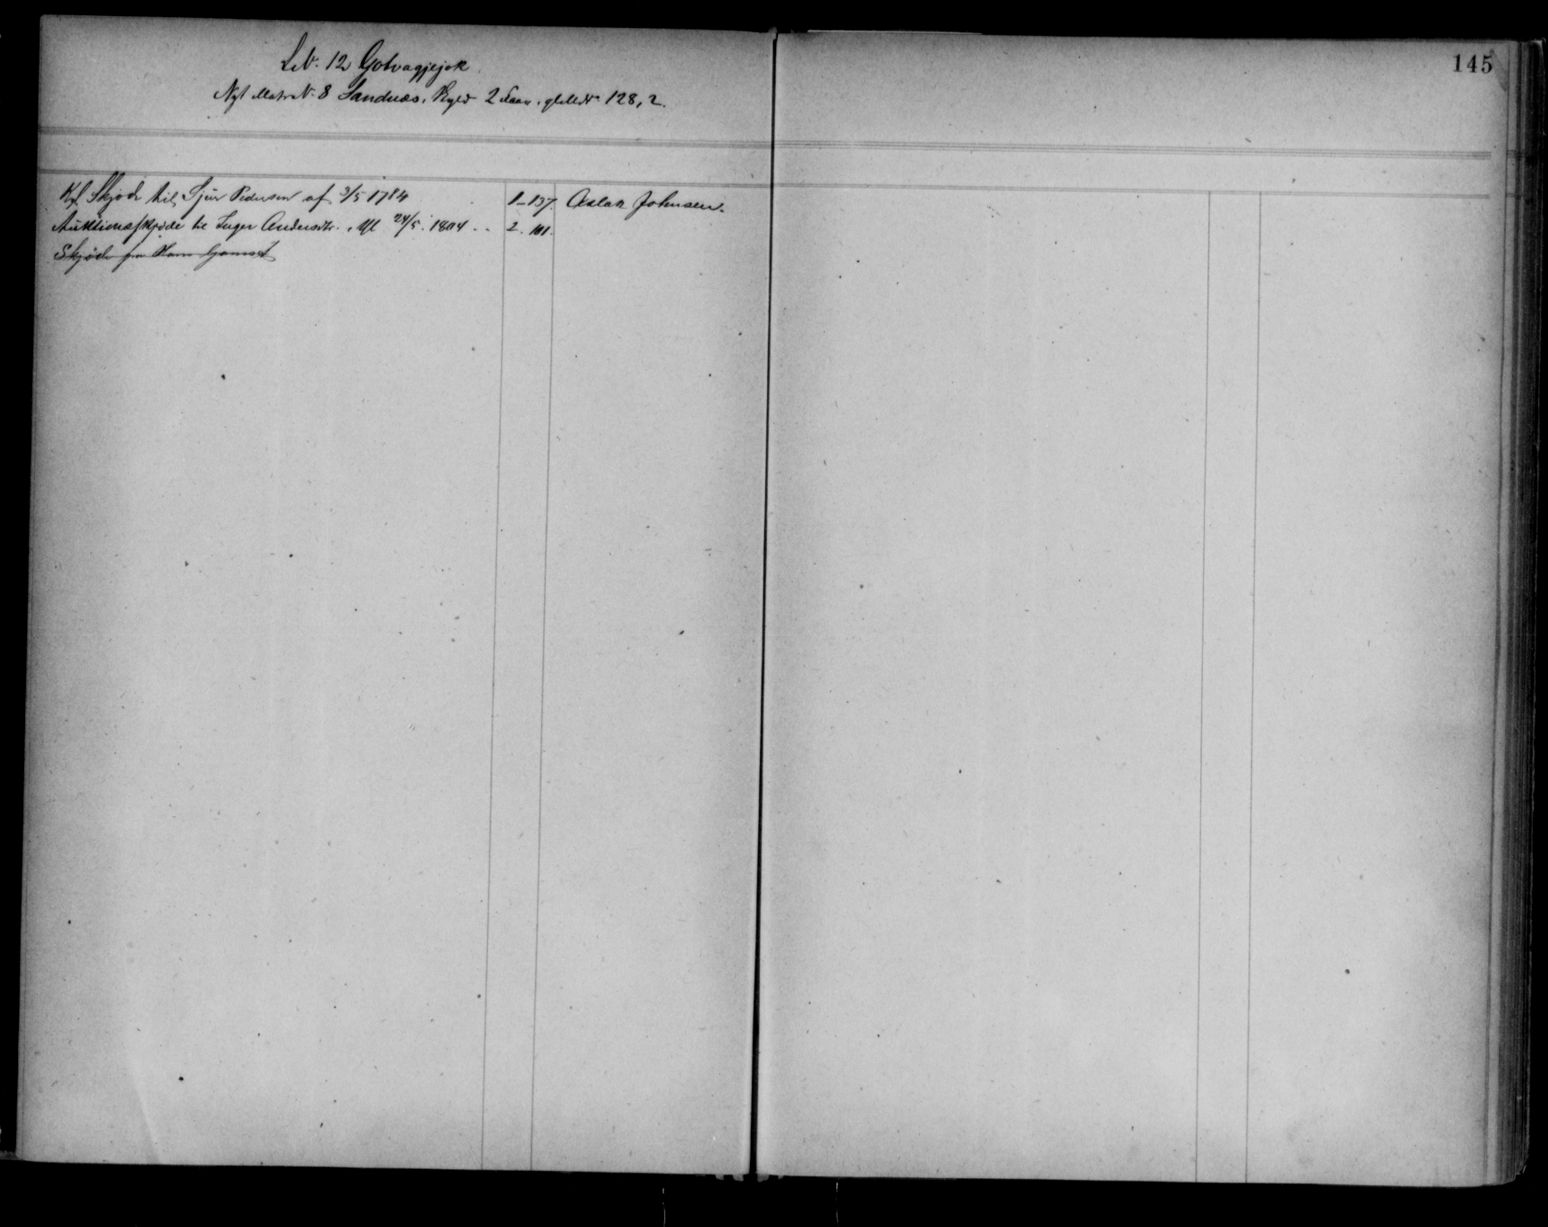 145
Lit. 12 Golvagjejok
Nyt Matr. N. 8 Sandnæs, Skyld 2 gl. Matr. 128, 2.
Kgl Skjøde til Sjur Pedersen af 3/5 1784 1-137. Aslak Johnsen.
Auktionsskjøde til Inger Andersdtr. af 24/5. 1804 .. 2. 101.
Skjøde fra Hans